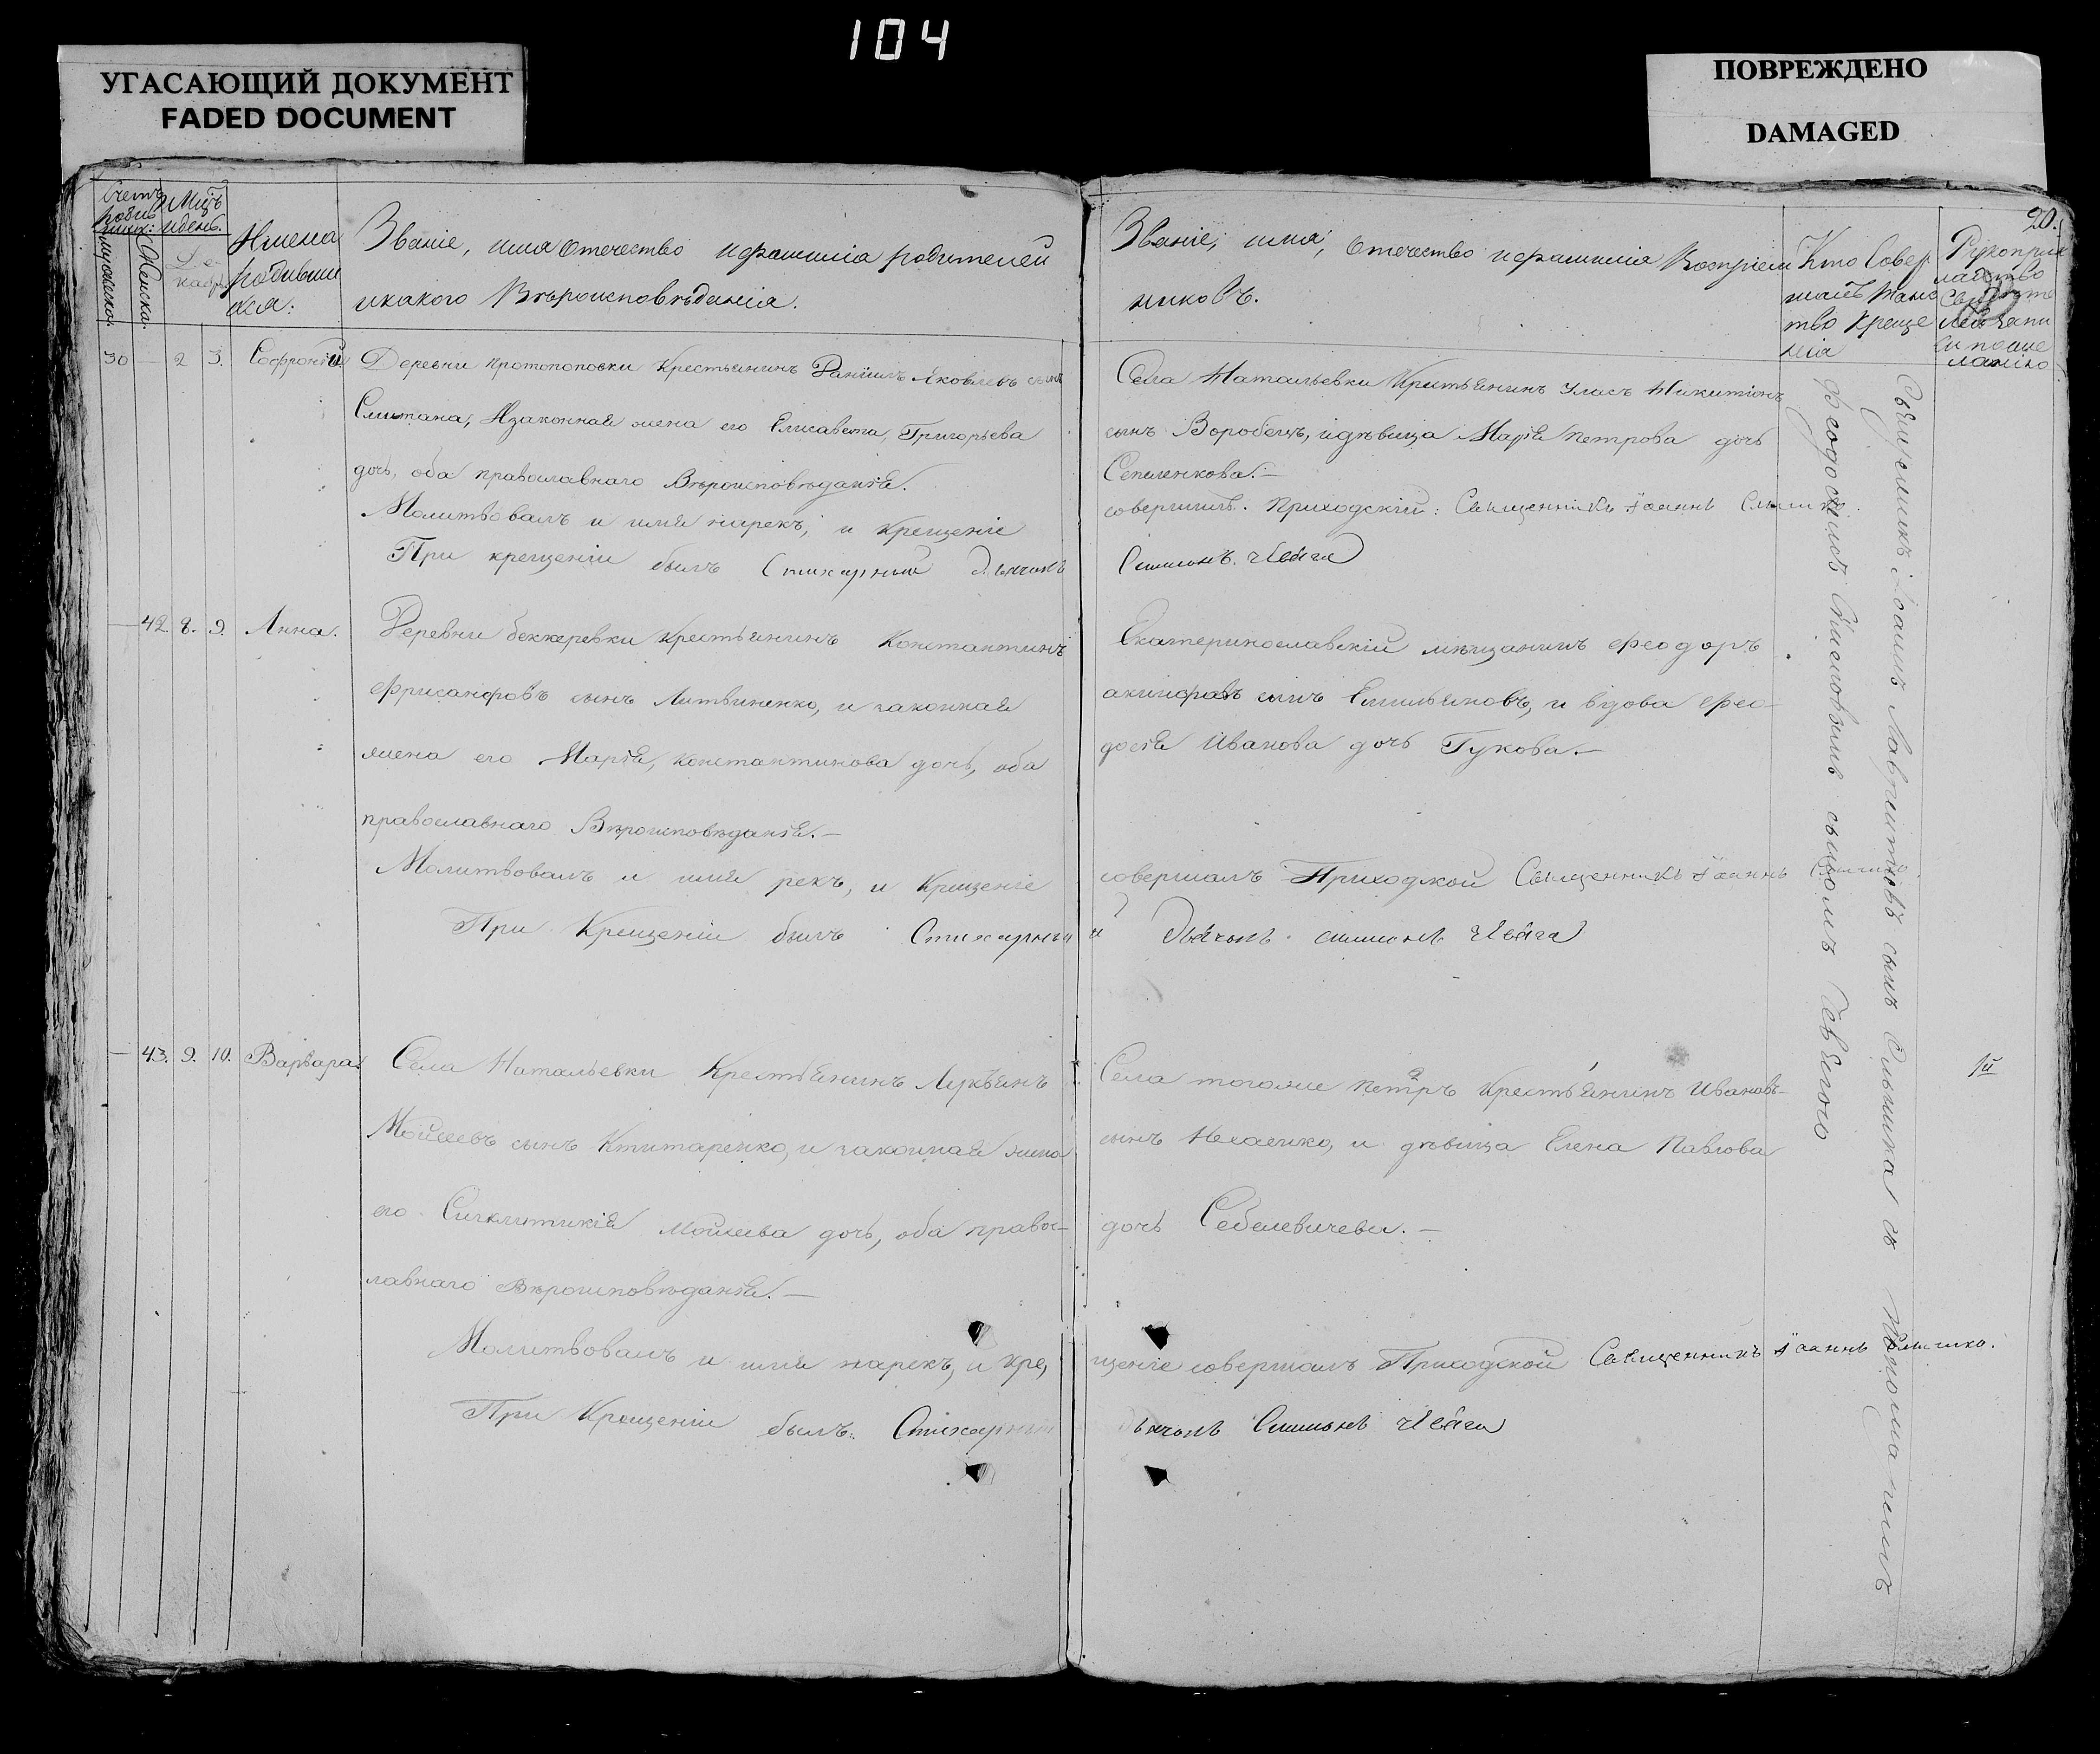 104
УГАСАЮЩИЙ ДОКУМЕНТ
FADED DOCUMENT
ПОВРЕЖДЕНО
DAMAGED
20.
Счетъ
родив
Мцъ
и день.
мужеска.
Женска.
Де-
кабр.
Имена
родивши
хся:
Званіе, имя отечество и фамилія родителей
и какого Вѣроисповѣданія.
Званіе, имя, отечество и фамилія Воспріем
никовъ.
Кто Совер
шалъ таинс
тво Креще
нія
Рукопри
кладство
лей запи
си по же
ланію
30 — 2 3. Софроній
Деревни Протопоповки Крестьянинъ Даніилъ Яковлевъ сынъ
Слитана, Изаконная жена его Елисавета, Григорьева
дочь, оба православнаго Вѣроисповѣданія.
Молитвовалъ и имя нарекъ, и Крещеніе
При крещеніи былъ Стихарный Дьячокъ
Села Натальевки Крестьянинъ Уласъ Никитинъ
сынъ Воробецъ, идѣвица Марія Петрова дочь
Сепиленкова.—
совершилъ. Приходскій: Священникъ Іоаннъ
Симионъ.
— 42. 8. 9. Анна.
Деревни беккеревки Крестьянинъ Константинъ
Фрисанфовъ сынъ Литвиненко, и законная
жена его Марія, Константинова дочь, оба
православнаго Вѣроисповѣданія.—
Молитвовалъ и имя рекъ, и Крещеніе
При Крещеніи былъ Стихарный
Екатеринославскій мѣщанинъ Феодоръ
акинфовъ сынъ Емильяновъ, и вдова Фео-
досія Иванова дочь Гукова.—
совершалъ Приходской Священникъ Іоаннъ
Дьячокъ симионъ
— 43. 9. 10. Варвара.
Села Натальевки Крестьянинъ Лукьянъ
Мойсеевъ сынъ Ктитаренко, и законная жена
его Сигклитикія Мойсеева дочь, оба правос-
лавнаго Вѣроисповѣданія.—
Молитвовалъ и имя нарекъ, и Кре,
При Крещеніи былъ: Стихарный
Села тогоже Петръ Крестьянинъ Ивановъ-
сынъ Нехаенко, и дѣвица Елена Павлова
дочь Себелевичева.—
щеніе совершалъ Приходской Священникъ Іоаннъ
дьячокъ Симионъ
Священникъ Іоаннъ сынъ съ Пономаремъ
Феодосіемъ сыномъ